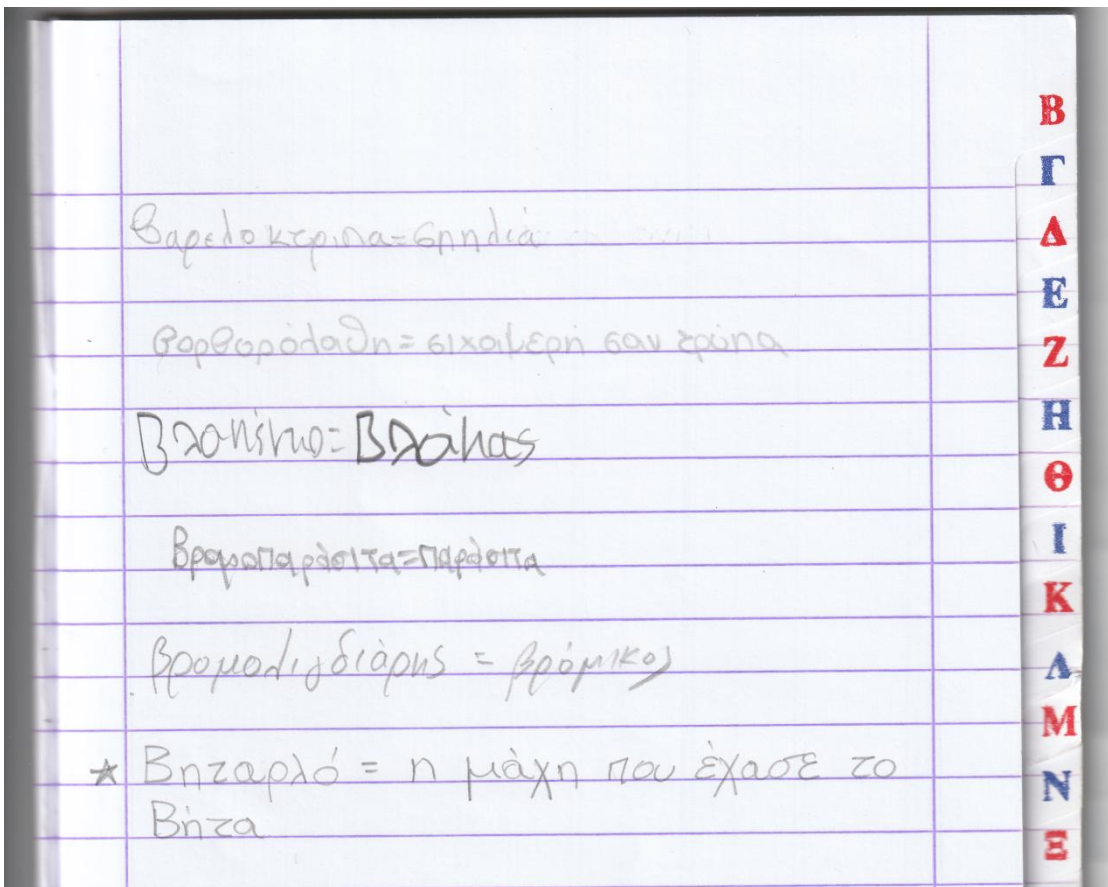 Βαρελοκτεριπα=σπηλιά
βορβορόλαθη=σιχαμερή σαν τρύπα
Βλακέντιο=Βλάκας
Βρωμοπαράσιτα=παράσιτα
Βρομολιγδιάρης = βρόμικος
* Βηταρλό = η μάχη που έχασε το
Βήτα
Β
Γ
Δ
Ε
Ζ
Η
Θ
Ι
Κ
Λ
Μ
Ν
Ξ